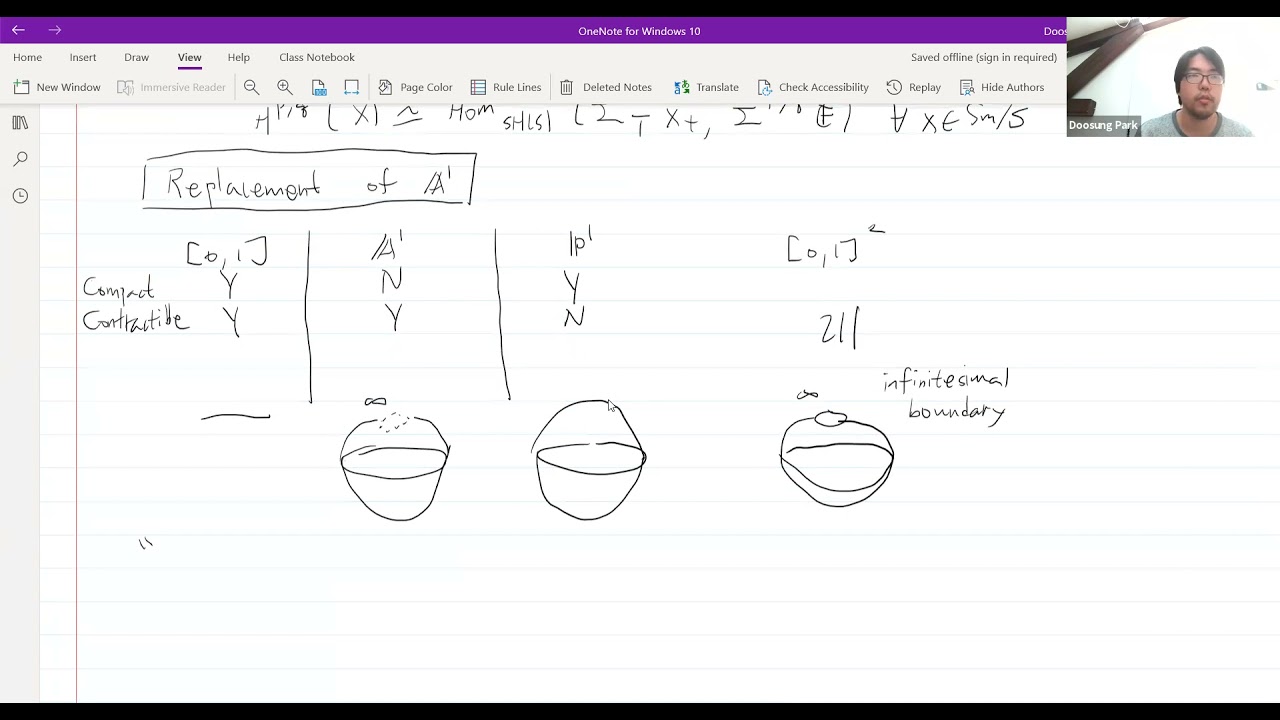 OneNote for Windows 10
Doos
Home Insert Draw View Help Class Notebook
Saved offline (sign in required)
New Window Immersive Reader Page Color Rule Lines Deleted Notes Translate Check Accessibility Replay Hide Authors
Doosung Park
H^{p,q}(X) ≃ Hom_{SH(S)}(Σ_T X_+, Σ^{p,q} 𝔼) ∀ X ∈ Sm/S
Replacement of 𝔸¹
[0,1] 𝔸¹ ℙ¹ [0,1]²
Compact Y N Y
Contractible Y Y N
infinitesimal
boundary
∞ ∞
"